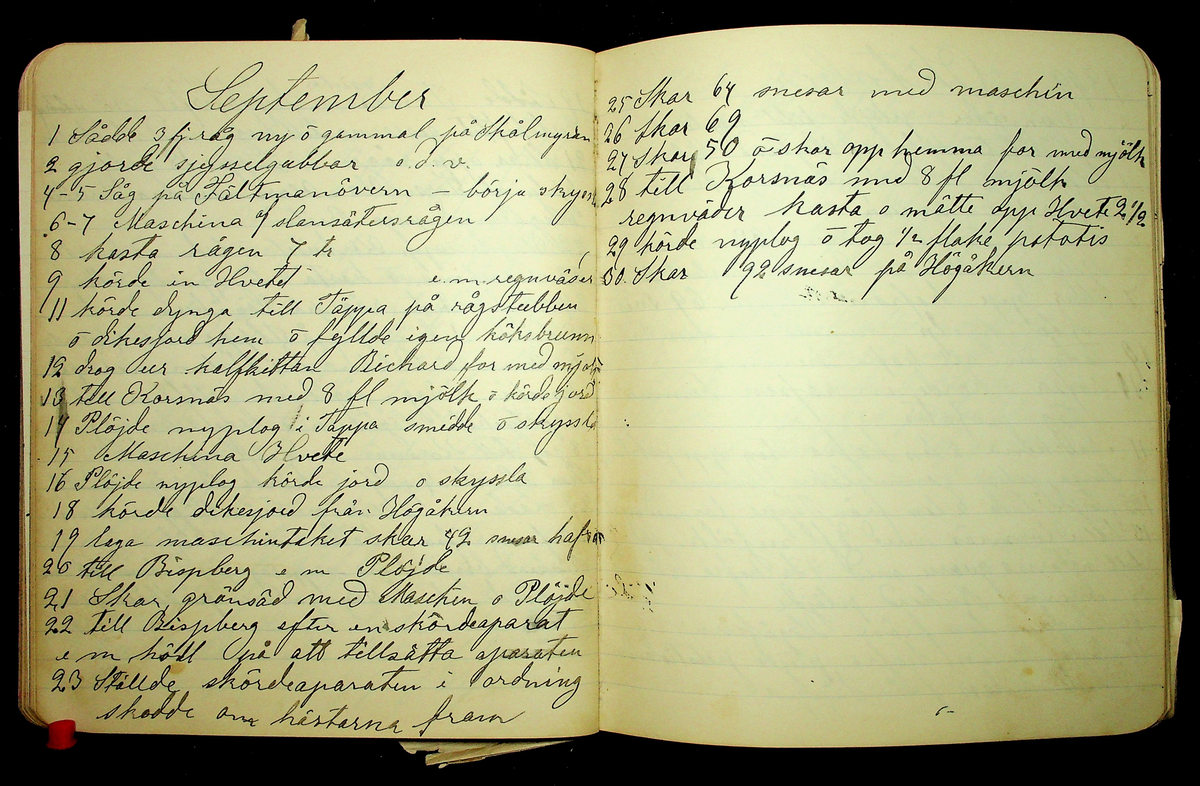 September
1 Sådde 3 fj råg ny ō gammal på Skålmyran
2 gjorde sysselgubbar o. d. v.
4-5 Såg på Fältmanövern – börja skyssla
6-7 Maschina af slansätersrågen
8 kasta rågen 7 tr
9 körde in Hvetet e. m. regnväder
11 körde dynga till Täppa på rågstubben
ō dikesjord hem ō fyllde igen köksbrunn
12 drog ur kalfkättan Richard for med mjölk
13 till Korsnäs med 8 fl mjölk ō körde jord
14 Plöjde nyplog i Täppa smidde ō skyssla
15 Maschina Hvete
16 Plöjde nyplog körde jord o skyssla
18 körde dikesjord från Högåkern
19 laga maschintaket skar 42 snesar hafra
20 till Bispberg e m Plöjde
21 Skar grönsäd med Maschin o Plöjde
22 till Bispberg efter en skördeaparat
e m höll på att tillsätta aparaten
23 Ställde skördeaparaten i ordning
skodde om hästarna fram
25 Skar 64 snesar med maschin
26 Skar 69
27 Skar 50 ō skar opp hemma for med mjölk
28 till Korsnäs med 8 fl mjölk
regnväder kasta o mätte opp Hvete 2 1/2
29 körde nyplog ō tog 1/2 flake potatis
30. Skar 92 snesar på Högåkern